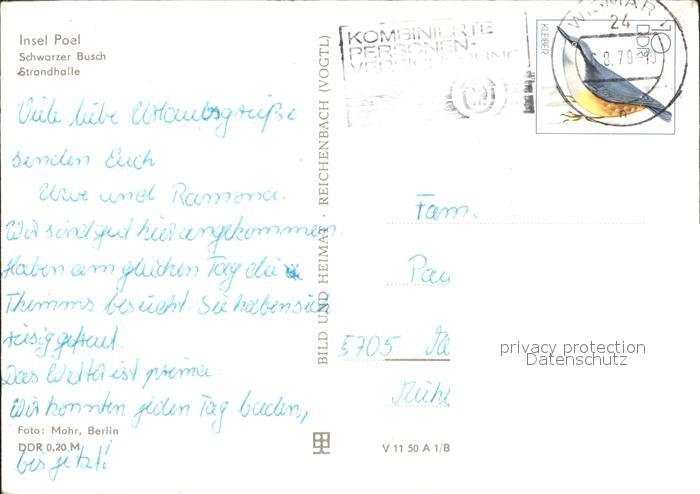 Insel Poel
Schwarzer Busch
Strandhalle
Viele liebe Urlaubsgrüße
senden Euch
Uwe und Ramona.
Wir sind gut hier angekommen.
Haben am gleichen Tag die
Thimms besucht. Sie haben sich
riesig gefreut.
Das Wetter ist prima.
Wir konnten jeden Tag baden,
bis jetzt!
Foto: Mohr, Berlin
DDR 0,20 M
BILD UND HEIMAT · REICHENBACH (VOGTL)
V 11 50 A 1/B
KOMBINIERTE
PERSONEN-
KLEIBER
10
DDR
WISMAR 1
24
8.79
Fam.
Pau
5705
Mühl
privacy protection
Datenschutz